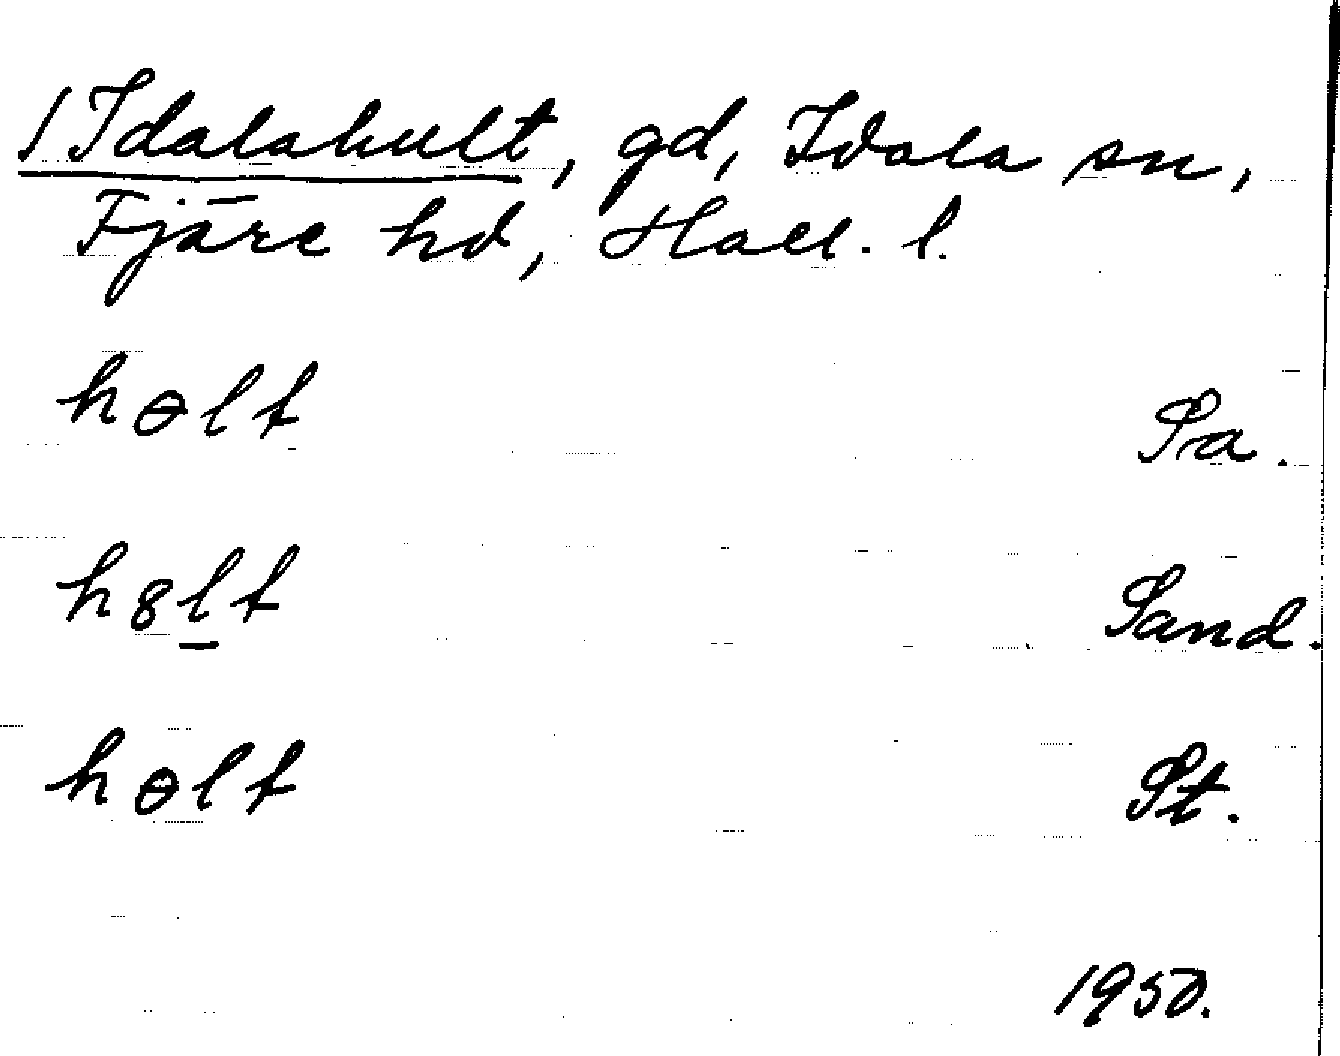 / Idalahult, gd, Idala sn,
Fjäre hd, Hall. l.
hɵlt Sa.
h8l̠t Sand.
hɵlt St.
1950.